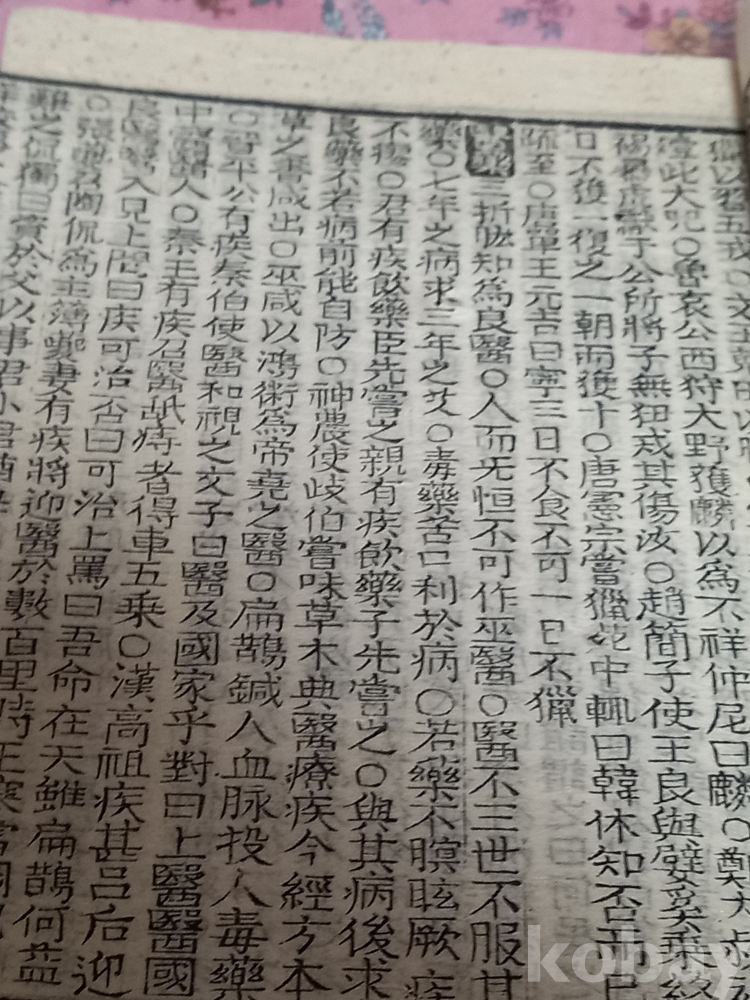 獵以習五戎○文王
此大兕○魯哀公西狩大野獲麟以為不祥仲尼曰麟○
裼暴虎獻于公所將子無狃戒其傷汝○趙簡子使王良與嬖奚乘終
日不獲一復之一朝而獲十○唐憲宗嘗獵苑中輒曰韓休知否而
疏至○唐單王元吉曰寧三日不食不可一日不獵
三折肱知為良醫○人而无恒不可作巫醫○醫不三世不服其
藥○七年之病求三年之艾○毒藥苦口利於病○若藥不瞑眩厥疾
不瘳○君有疾飲藥臣先嘗之親有疾飲藥子先嘗之○與其病後求
良藥不若病前能自防○神農使歧伯嘗味草木典醫療疾今經方本
草之書咸出○巫咸以鴻術為帝堯之醫○扁鵲鍼人血脉投人毒藥
○晉平公有疾秦伯使醫和視之文子曰醫及國家乎對曰上醫醫國
中醫醫人○秦王有疾召醫舐痔者得車五乘○漢高祖疾甚呂后迎
良醫醫入見上問曰疾可治否曰可治上罵曰吾命在天雖扁鵲何益
○張夔召陶侃為主簿夔妻有疾將迎醫於數百里時正寒
難之侃獨曰資於父以事君小君猶母
kobay